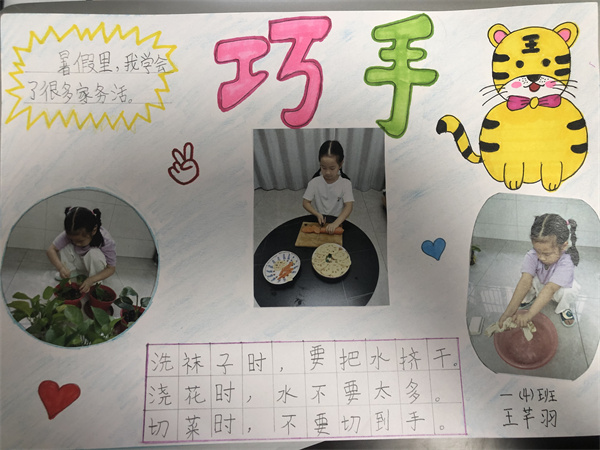 暑假里，我学会
了很多家务活。
巧手
王
洗袜子时，要把水挤干。
浇花时，水不要太多。
切菜时，不要切到手。
一(4)班
王芊羽